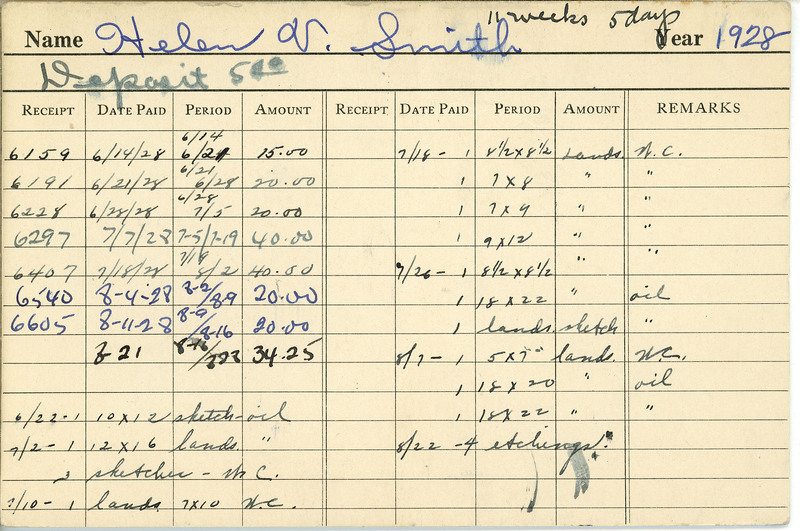 11 weeks 5 days
Name Helen V. Smith Year 1928
Deposit 5.00
RECEIPT DATE PAID PERIOD AMOUNT RECEIPT DATE PAID PERIOD AMOUNT REMARKS
6159 6/14/28 6/14 6/21 15.00 7/18 - 1 8½x8½ Lands. W.C.
6191 6/21/28 6/21 6/28 20.00 1 7x8 " "
6228 6/28/28 6/28 7/5 20.00 1 7x9 " "
6297 7/7/28 7-5/7-19 40.00 1 9x12 " "
6407 7/18/28 7/19 8/2 40.00 7/26 - 1 8½x8½ " "
6540 8-4-28 8-2/8-9 20.00 1 18x22 " oil
6605 8-11-28 8-9/8-16 20.00 1 lands. sketch "
8-21 8-16/ 34.25 8/7 - 1 5x7" lands. W.C.
1 18x20 " oil
6/22-1 10x12 sketch-oil 1 18x22 " "
7/2-1 12x16 lands. " 8/22 - 4 etchings.
3 sketches - W.C.
7/10-1 lands. 7x10 W.C.